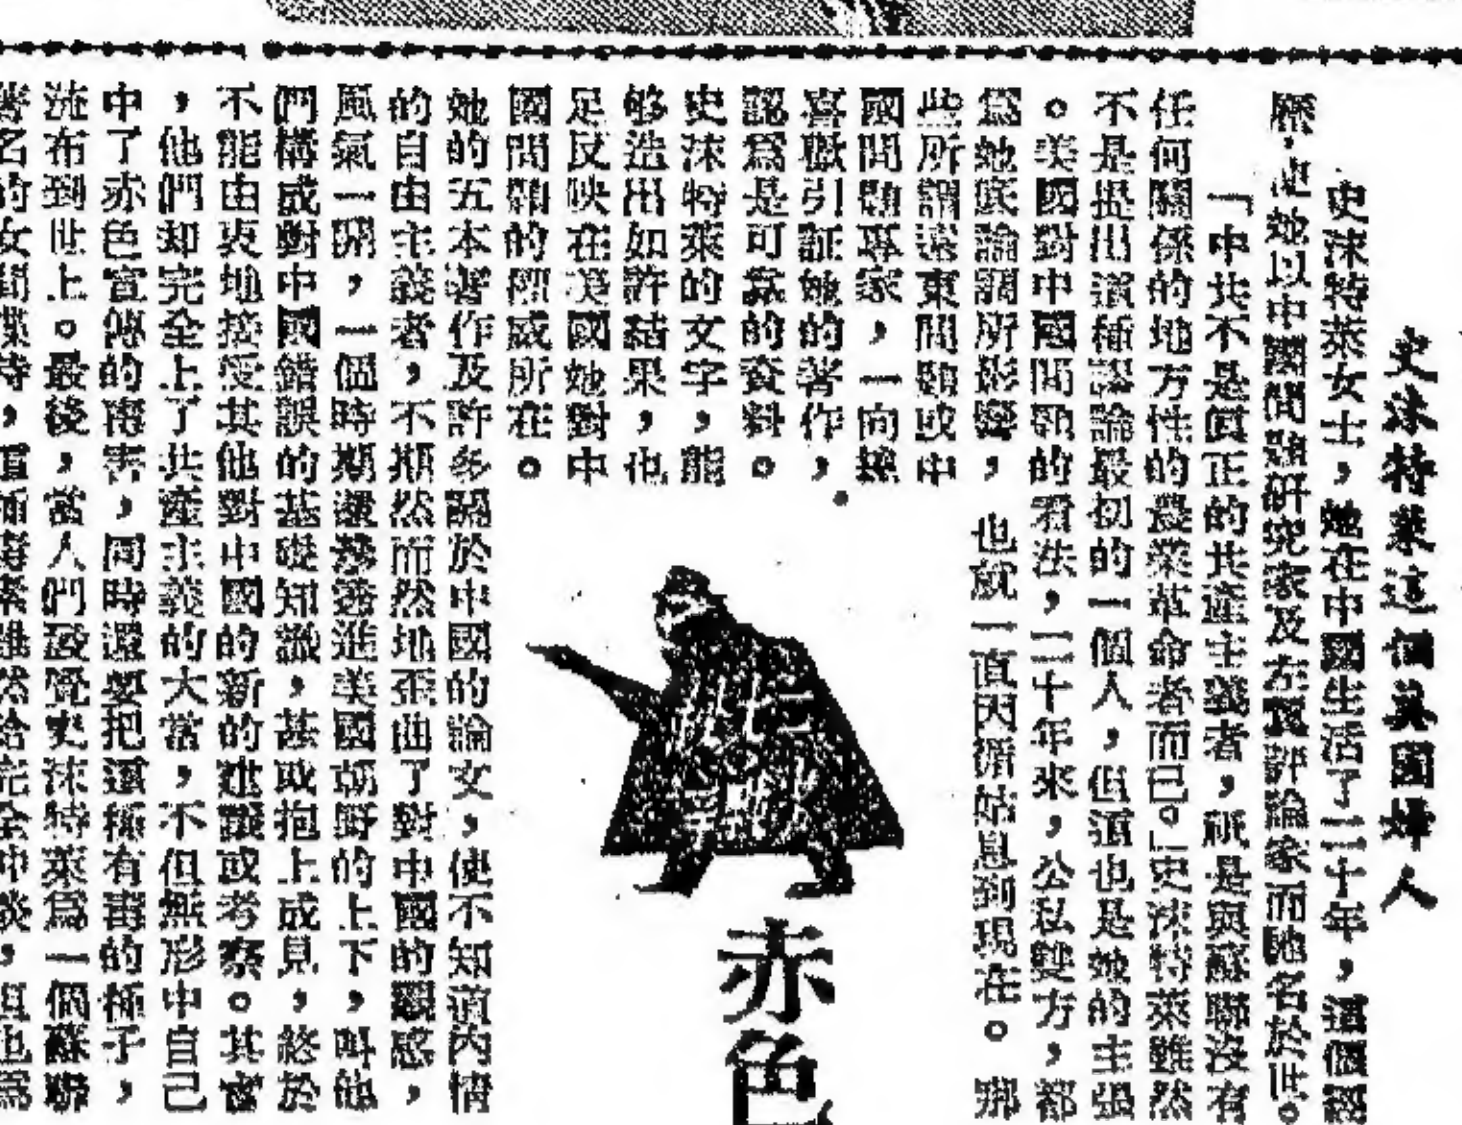 史沫特萊這個美國婦人
史沫特萊女士，她在中國生活了二十年，這個經
歷，使她以中國問題研究家及左翼評論家而馳名於世。
「中共不是眞正的共產主義者，祇是與蘇聯沒有
任何關係的地方性的農業革命者而已。」史沫特萊雖然
不是提出這種謬論最初的一個人，但這也是她的主張
。美國對中國問題的看法，二十年來，公私雙方，都
爲她底論調所影響，也就一直因循姑息到現在。那
些所謂遠東問題或中
國問題專家，一向樣
喜歡引証她的著作，
認爲是可靠的資料。
史沫特萊的文字，能
够造出如許結果，也
足反映在美國她對中
國問題的權威所在。
赤色
她的五本著作及許多關於中國的論文，使不知道內情
的自由主義者，不期然而然地歪曲了對中國的觀感，
風氣一開，一個時期還滲進美國朝野的上下，叫他
們構成對中國錯誤的基礎知識，甚或抱上成見，終於
不能由衷地接受其他對中國的新的建議或考察。其實
，他們却完全上了共產主義的大當，不但無形中自己
中了赤色宣傳的毒害，同時還要把這種有毒的種子，
流布到世上。最後，當人們發覺史沫特萊爲一個蘇聯
著名的女間諜時，這種毒素雖然給完全冲淡，但也爲